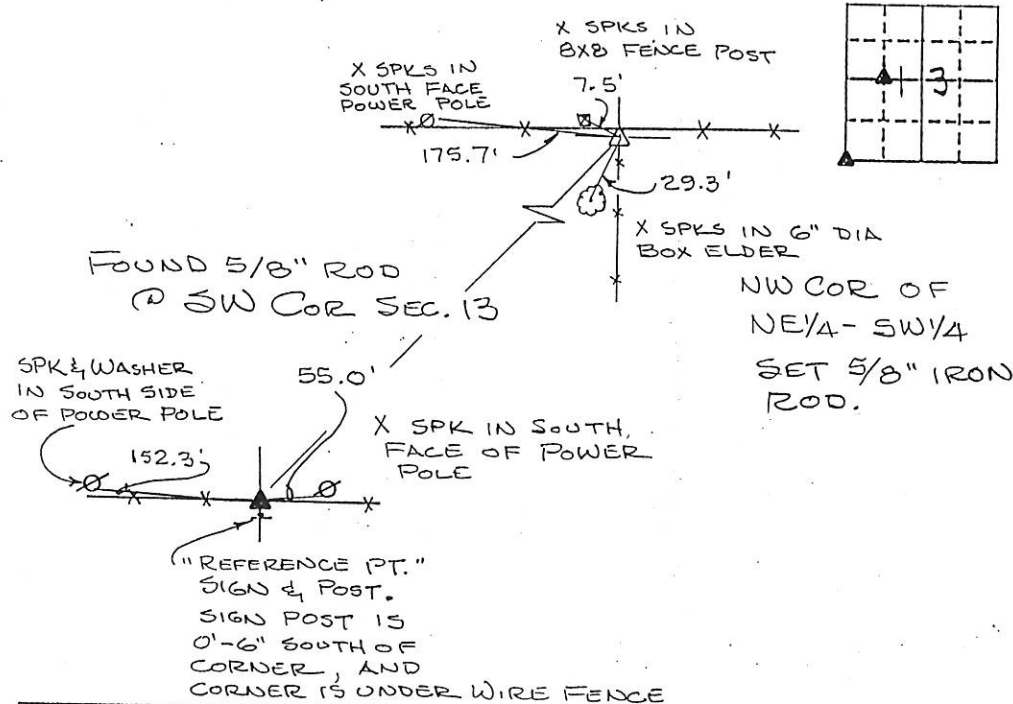 X SPKS IN
8X8 FENCE POST
7.5'
X SPKS IN
SOUTH FACE
POWER POLE
175.7'
29.3'
13
X SPKS IN 6" DIA
BOX ELDER
FOUND 5/8" ROD
@ SW COR SEC. 13
NW COR OF
NE1/4- SW1/4
SET 5/8" IRON
ROD.
SPK & WASHER
IN SOUTH SIDE
OF POWER POLE
55.0'
152.3'
X SPK IN SOUTH,
FACE OF POWER
POLE
"REFERENCE PT."
SIGN & POST.
SIGN POST IS
0'-6" SOUTH OF
CORNER, AND
CORNER IS UNDER WIRE FENCE